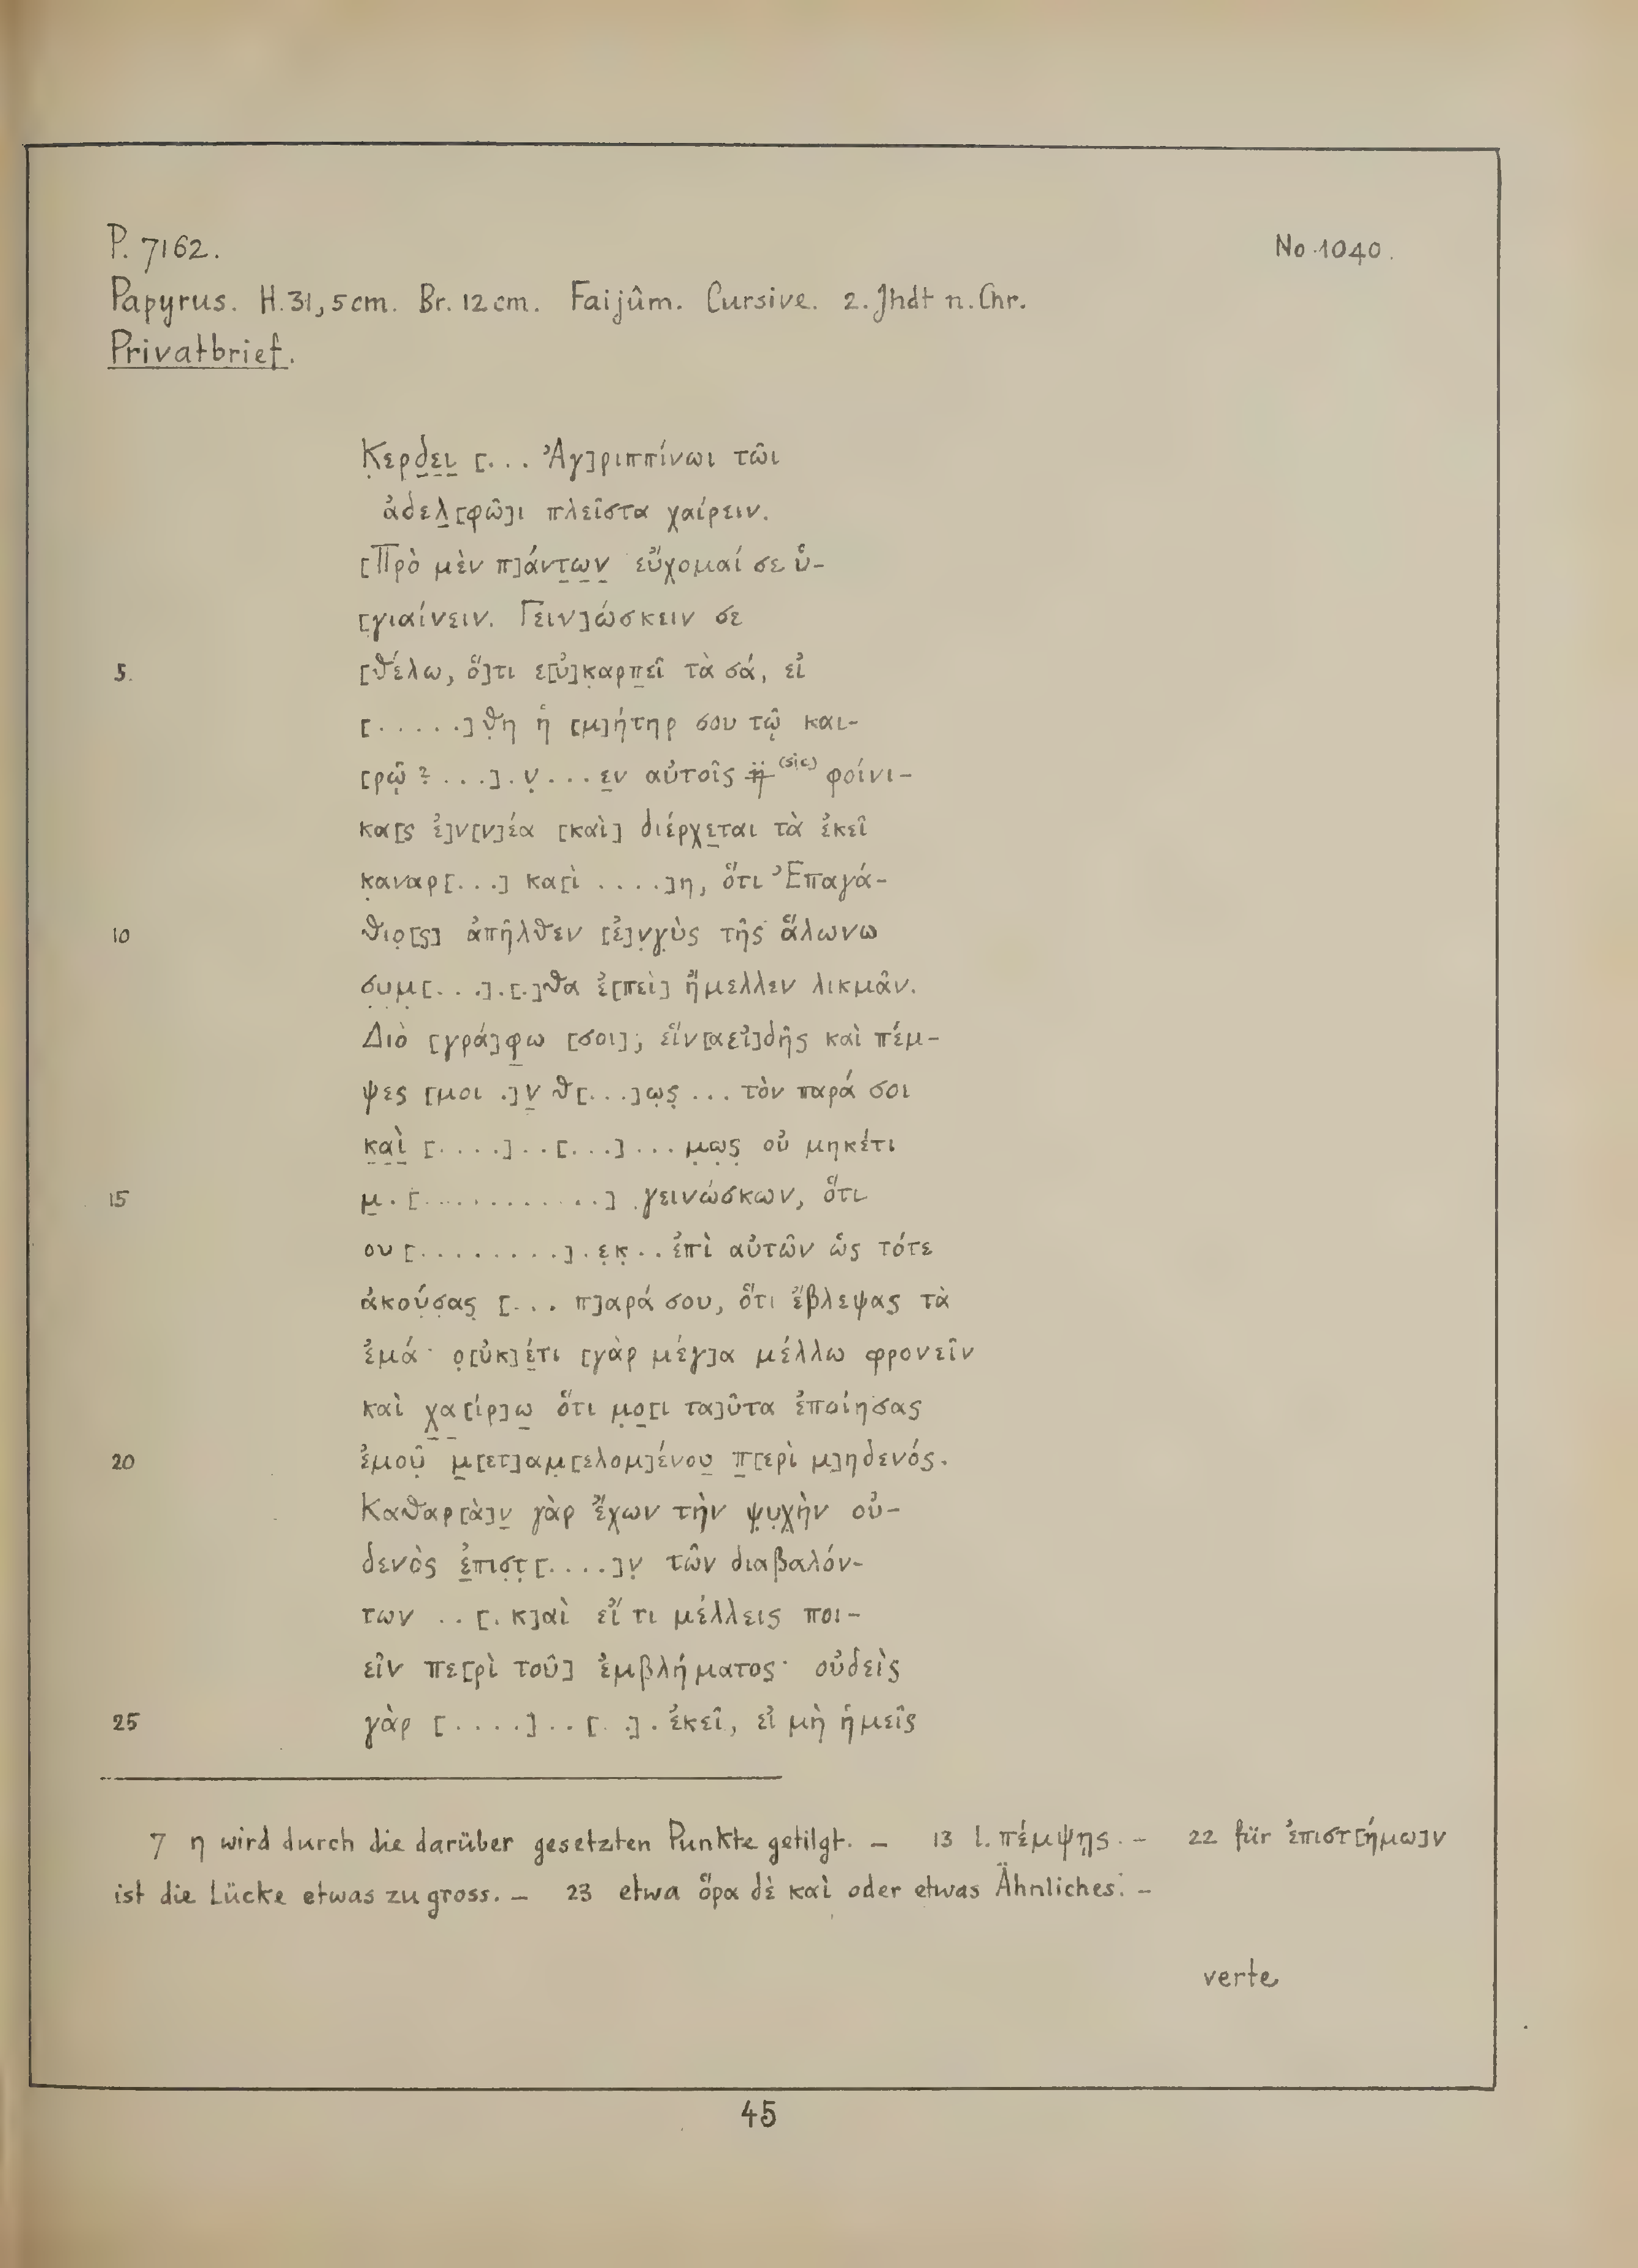 P. 7162.
No 1040.
Papyrus. H. 31,5 cm. Br. 12 cm. Faijûm. Cursive. 2. Jhdt n. Chr.
Privatbrief.
Κ̣ερδ̣ε̣ι̣ [... Ἀγ]ριππίνωι τῶι
ἀδελ̣[φῶ]ι πλεῖστα χαίρειν.
[Πρὸ μὲν π]άντ̣ω̣ν̣ εὔχομαί σε ὑ-
[γιαίνειν. Γειν]ώσκειν σε
5. [θέλω, ὅ]τι ε[ὐ]κ̣αρπ̣εῖ τὰ σά, εἰ
[......]θ̣η ἡ [μ]ήτηρ σου τῷ και-
[ρῷ ? ...].ν̣...ε̣ν αὐτοῖς η̈ (sic) φοίνι-
κα[ς ἐ]ν[ν]έα [καὶ] διέρχε̣ται τὰ ἐκεῖ
κ̣αναρ[...] κα[ὶ ....]η, ὅτι Ἐπαγά-
10 θιο̣[ς] ἀπῆλθεν [ἐ]ν̣γ̣ὺς τῆς ἅλωνω
σ̣υ̣μ̣[...].[.]θα ἐ[πεὶ] ἤμελλεν λικμᾶν.
Διὸ [γρά]φ̣ω [σοι], εἵν[α εἰ]δῇς καὶ πέμ-
ψες [μοι .]ν̣ θ[...]ω̣ς̣ ... τὸν παρά σοι
κ̣α̣ὶ̣ [....]..[...]...μ̣ω̣ς̣ οὐ μηκέτι
15 μ̣.[............] γεινώσκων, ὅτι
ου[.........].ε̣κ̣..ἐπὶ αὐτῶν ὡς τότε
ἀκού̣σ̣ας̣ [... π]αρά σου, ὅτι ἔβλεψας τὰ
ἐμά· ο̣[ὐκ]έ̣τι [γὰρ μέγ]α μέλλω φρονεῖν
καὶ χ̣α̣[ίρ]ω̣ ὅτι μ̣ο̣[ι τα]ῦτα ἐποίησας
20 ἐμοῦ̣ μ̣[ετ]αμ̣[ελομ]ένου̣ π̣[ερὶ μ]ηδενός.
Καθαρ[ὰ]ν̣ γὰρ ἔχων τὴν ψ̣υ̣χ̣ὴν οὐ-
δενὸς ἐ̣πισ̣τ̣[....]ν̣ τῶν διαβαλόν-
των ..[. κ]αὶ εἴ τι μέλλεις ποι-
εῖν πε[ρὶ τοῦ] ἐμβλήματος· οὐδεὶς
25 γὰρ [....]..[..].ἐκεῖ, εἰ μὴ ἡμεῖς
7 η wird durch die darüber gesetzten Punkte getilgt. – 13 l. πέμψῃς. – 22 für ἐπιστ[ήμω]ν
ist die Lücke etwas zu gross. – 23 etwa ὅρα δὲ καὶ oder etwas Ähnliches. –
verte
45